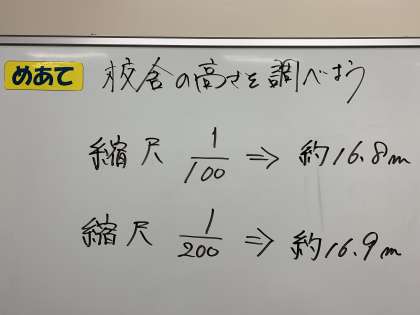 めあて 校舎の高さを調べよう
縮尺 1/100 ⇒ 約16.8m
縮尺 1/200 ⇒ 約16.9m